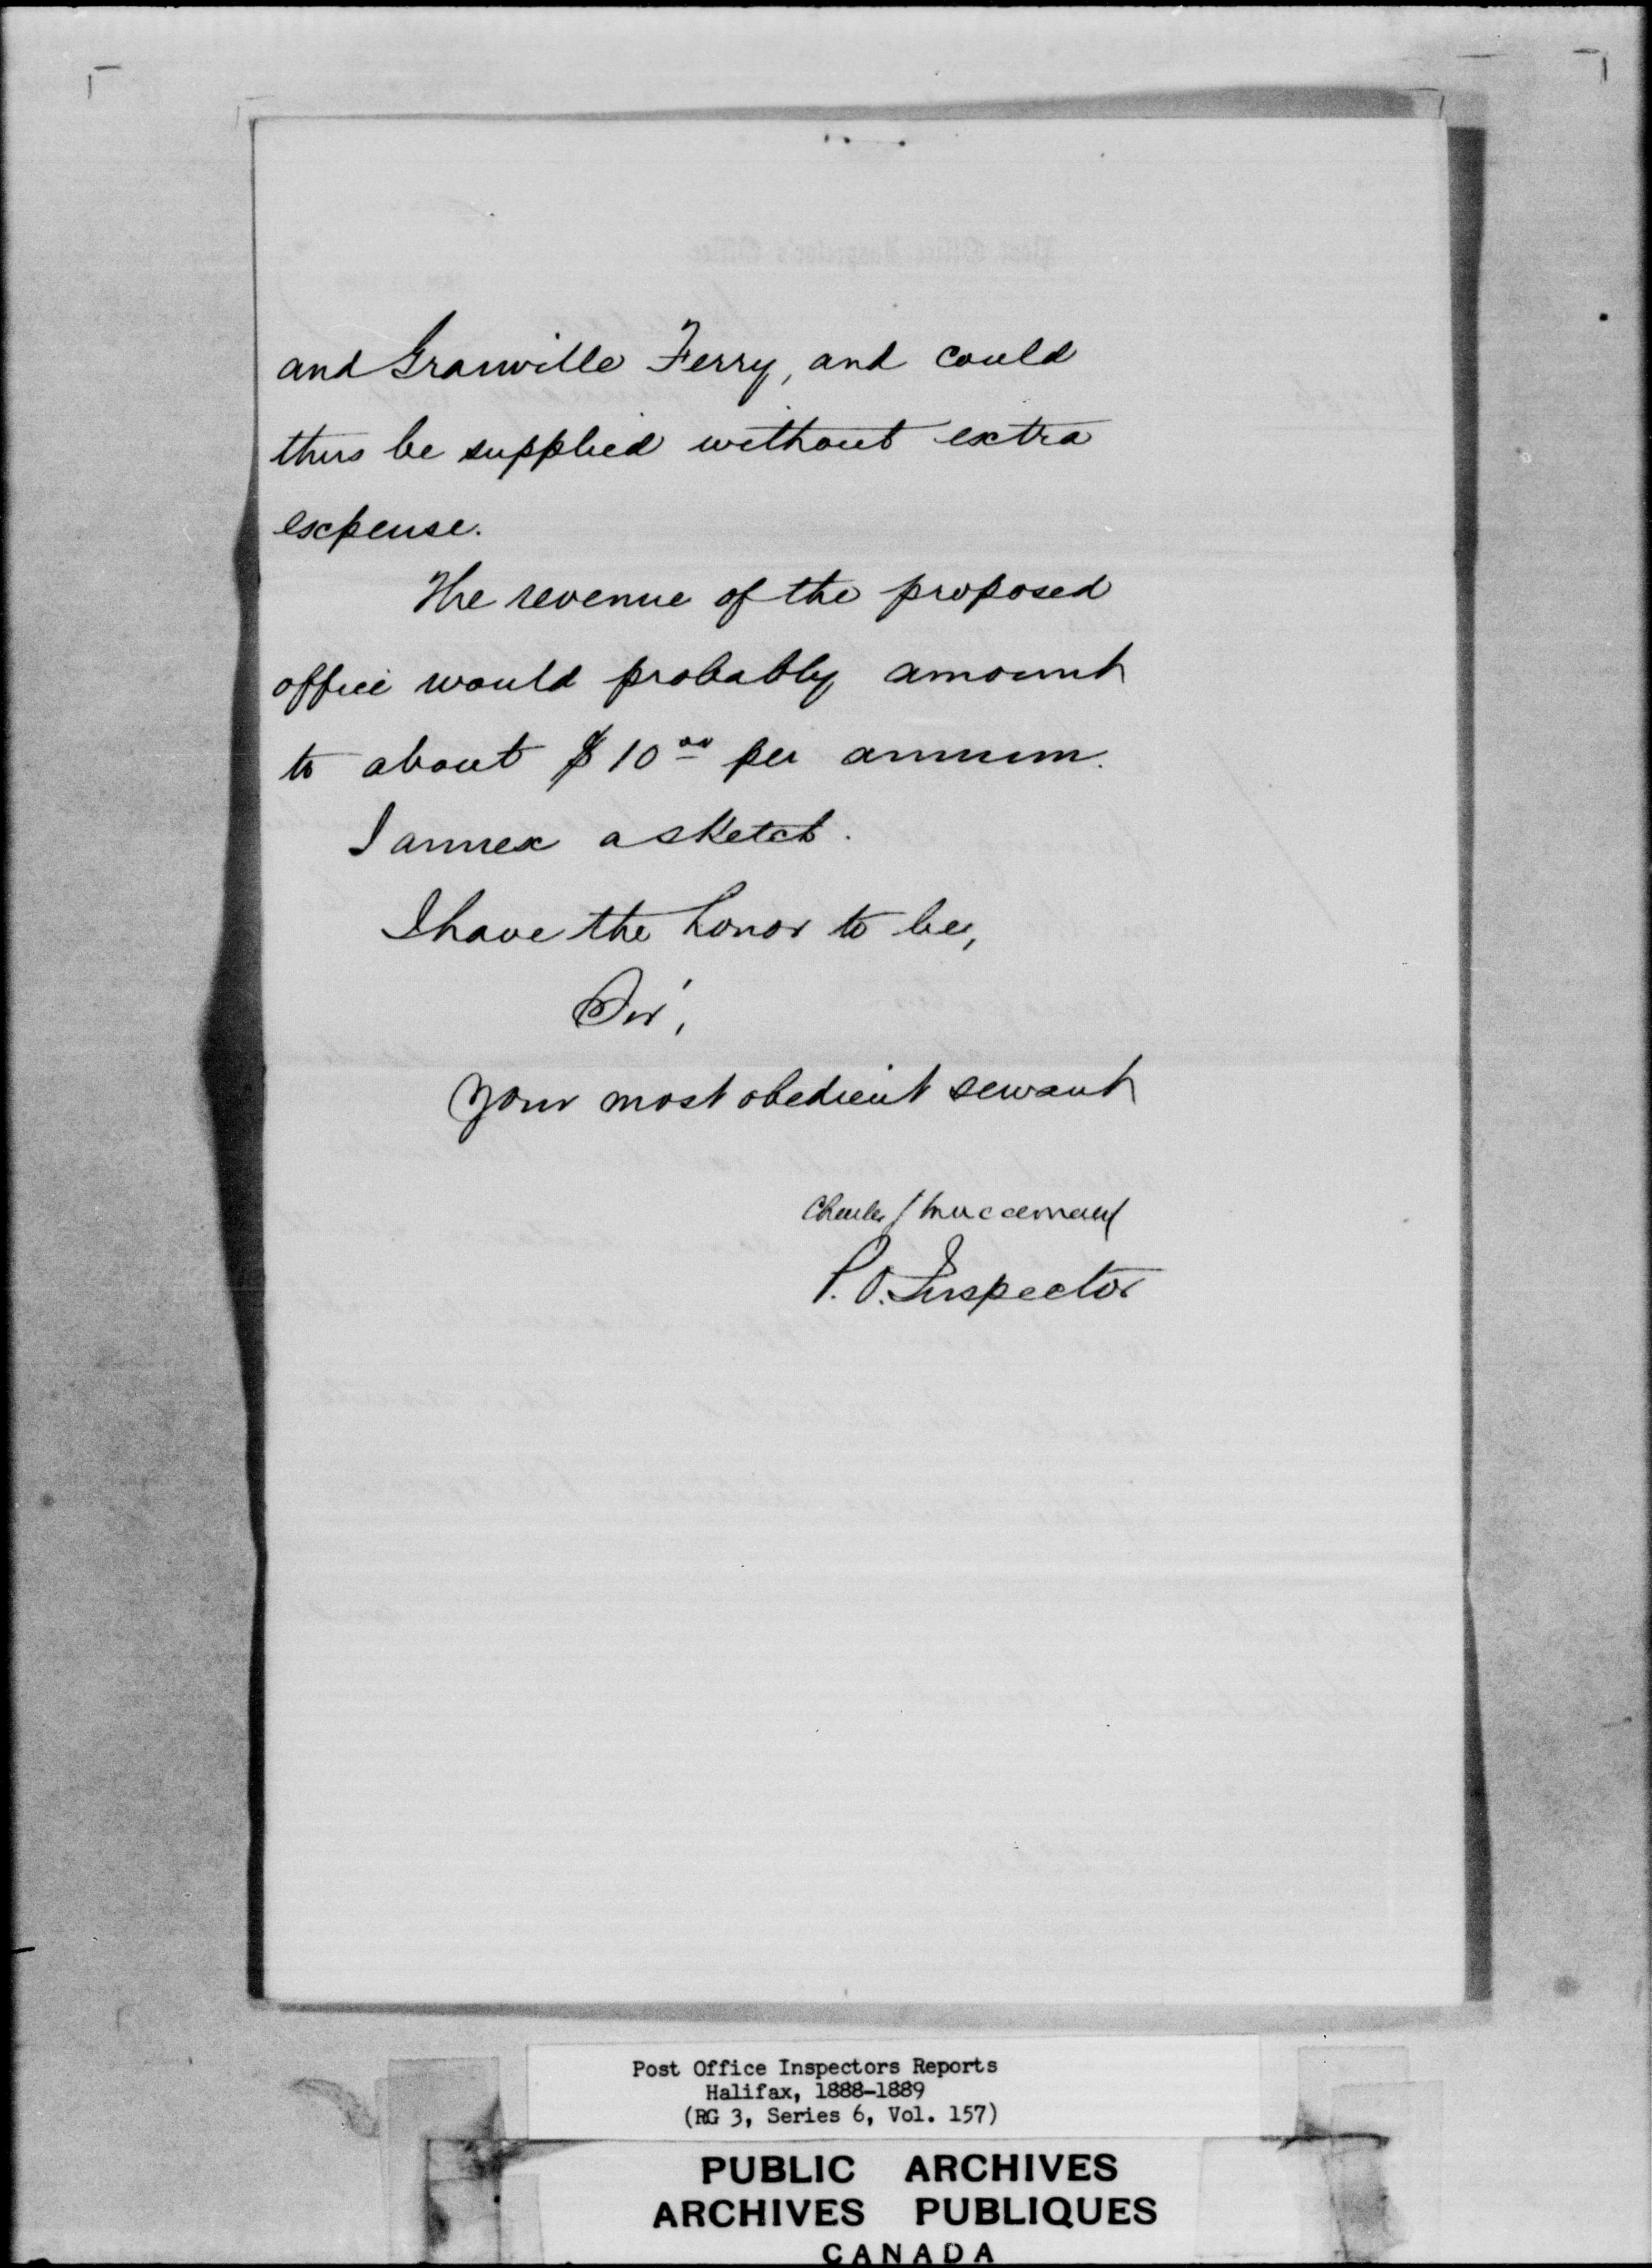 and Granville Ferry, and could
thus be supplied without extra
expense.
The revenue of the proposed
office would probably amount
to about $10 00 per annum.
I annex a sketch.
I have the honor to be,
Sir,
Your most obedient servant
Charles J Macdonald
P.O. Inspector
Post Office Inspectors Reports
Halifax, 1888-1889
(RG 3, Series 6, Vol. 157)
PUBLIC ARCHIVES
ARCHIVES PUBLIQUES
CANADA